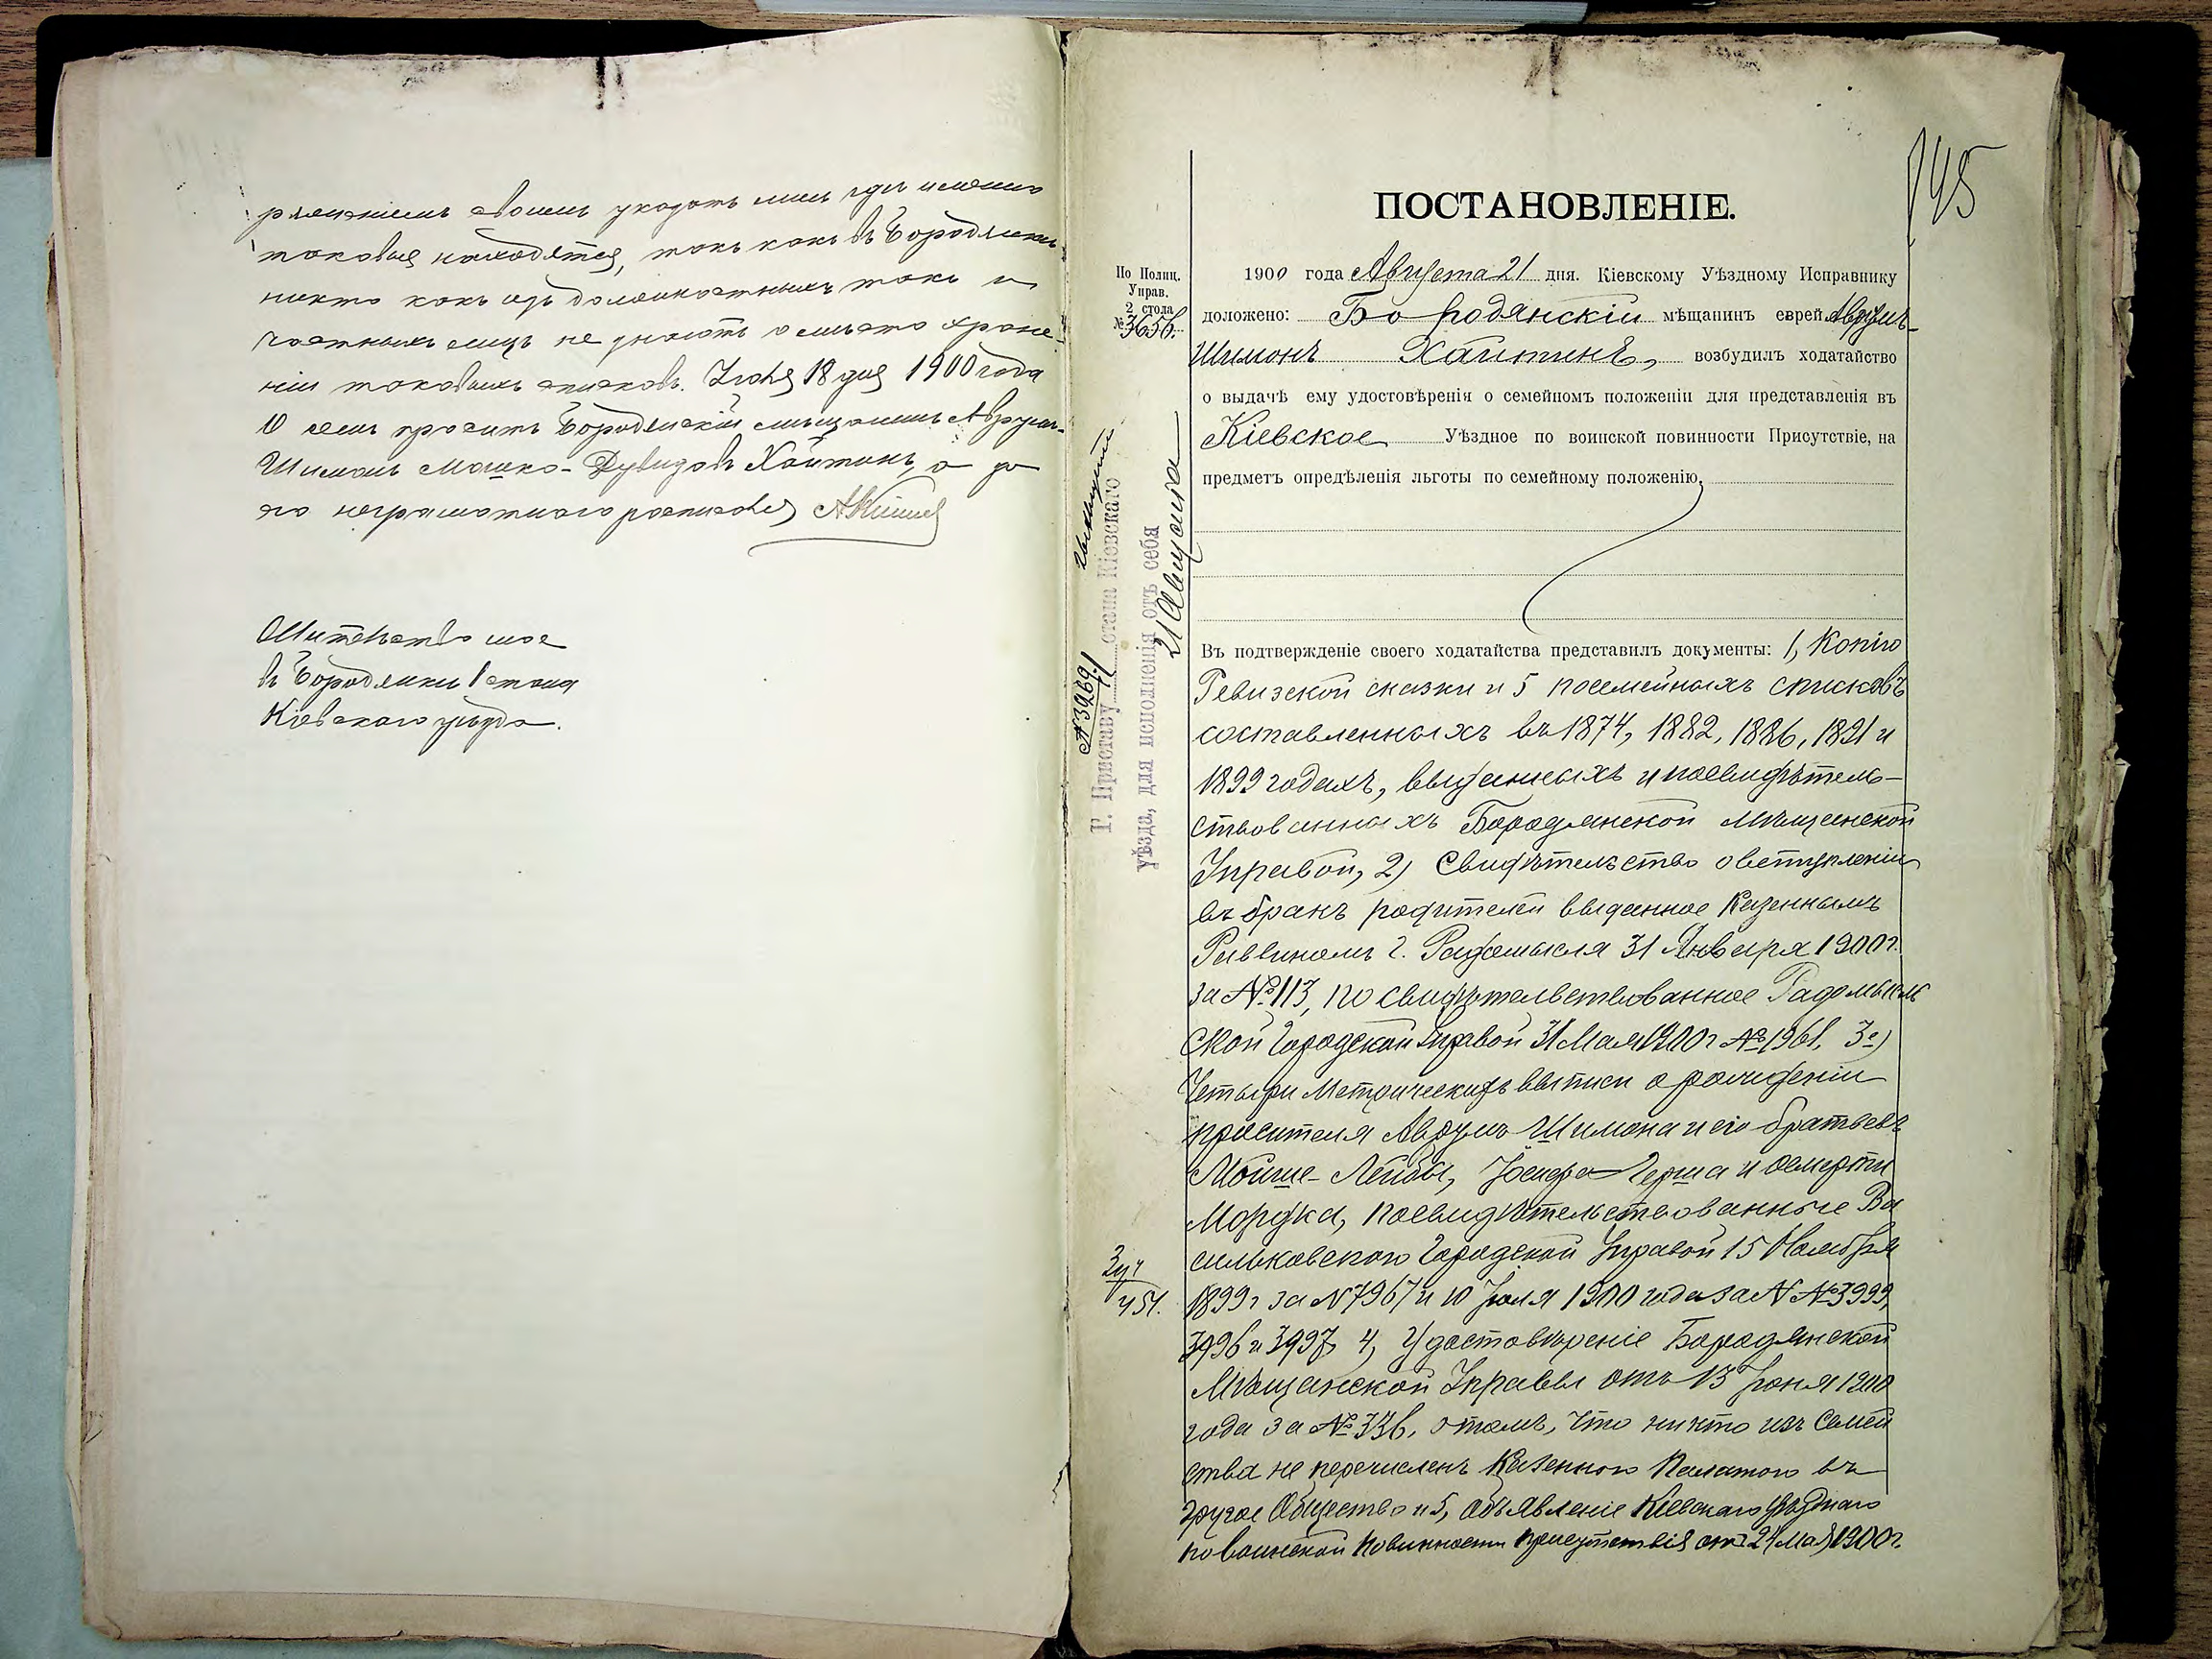 своемъ указать мнѣ гдѣ именно
таковыя находятся, такъ какъ въ Бородянкѣ
никто какъ изъ должностныхъ такъ и
частныхъ лицъ не знаютъ о мѣстѣ хране-
ніи таковыхъ списковъ. Іюня 18 дня 1900 года
О семъ проситъ Бородянскій мѣщанинъ Аврумъ-
Шимонъ Мошко-Дувидовъ Хаитинъ, а за
его неграмотнаго росписался
Жительство мое
въ Бородянки 1 стана
Кіевскаго уѣзда.
145
ПОСТАНОВЛЕНІЕ.
По Полиц.
Управ.
2 стола
№ 3656.
1900 года Августа 21 дня. Кіевскому Уѣздному Исправнику
доложено: Бородянскій мѣщанинъ еврей Аврумъ-
Шимонъ Хаитинъ, возбудилъ ходатайство
о выдачѣ ему удостовѣренія о семейномъ положеніи для представленія въ
Кіевское Уѣздное по воинской повинности Присутствіе, на
предметъ опредѣленія льготы по семейному положенію,
Въ подтвержденіе своего ходатайства представилъ документы: 1, Копію
Ревизской сказки и 5 посемейныхъ списковъ
составленныхъ въ 1874, 1882, 1886, 1891 и
1899 годахъ, выданныхъ и посвидѣтель-
ствованныхъ Бородянской Мѣщанской
Управой, 2) Свидѣтельство о вступленіи
въ бракъ родителей выданное Казеннымъ
Раввиномъ г. Радомысля 31 Января 1900 г.
за № 113, посвидѣтельствованное Радомысль
ской Городской Управой 31 Мая 1900 г № 1961, 3)
Четыри Метрическихъ выписи о рожденіи
просителя Аврумъ Шимона и его братьевъ
Мойше-Лейбы, Іосифа-Герша и о смерти
Мордка, посвидѣтельствованные Ва
сильковской Городской Управой 15 Ноября
1899 г за № 7967 и 10 Іюля 1900 года за № № 3999,
3996 и 3997, 4, Удостовѣреніе Бородянской
Мѣщанской Управы отъ 13 Іюня 1900
года за № 336, о томъ, что никто изъ семей
ства не перечисленъ Казенною Палатою въ
другое Общество и 5, объявленіе Кіевскаго Уѣзднаго
по воинской повинности присутствія отъ 24 Мая 1900 г.
№ 3969.
Г. Приставу 1 стана Кіевскаго
уѣзда, для исполненія отъ себя
21 Августа